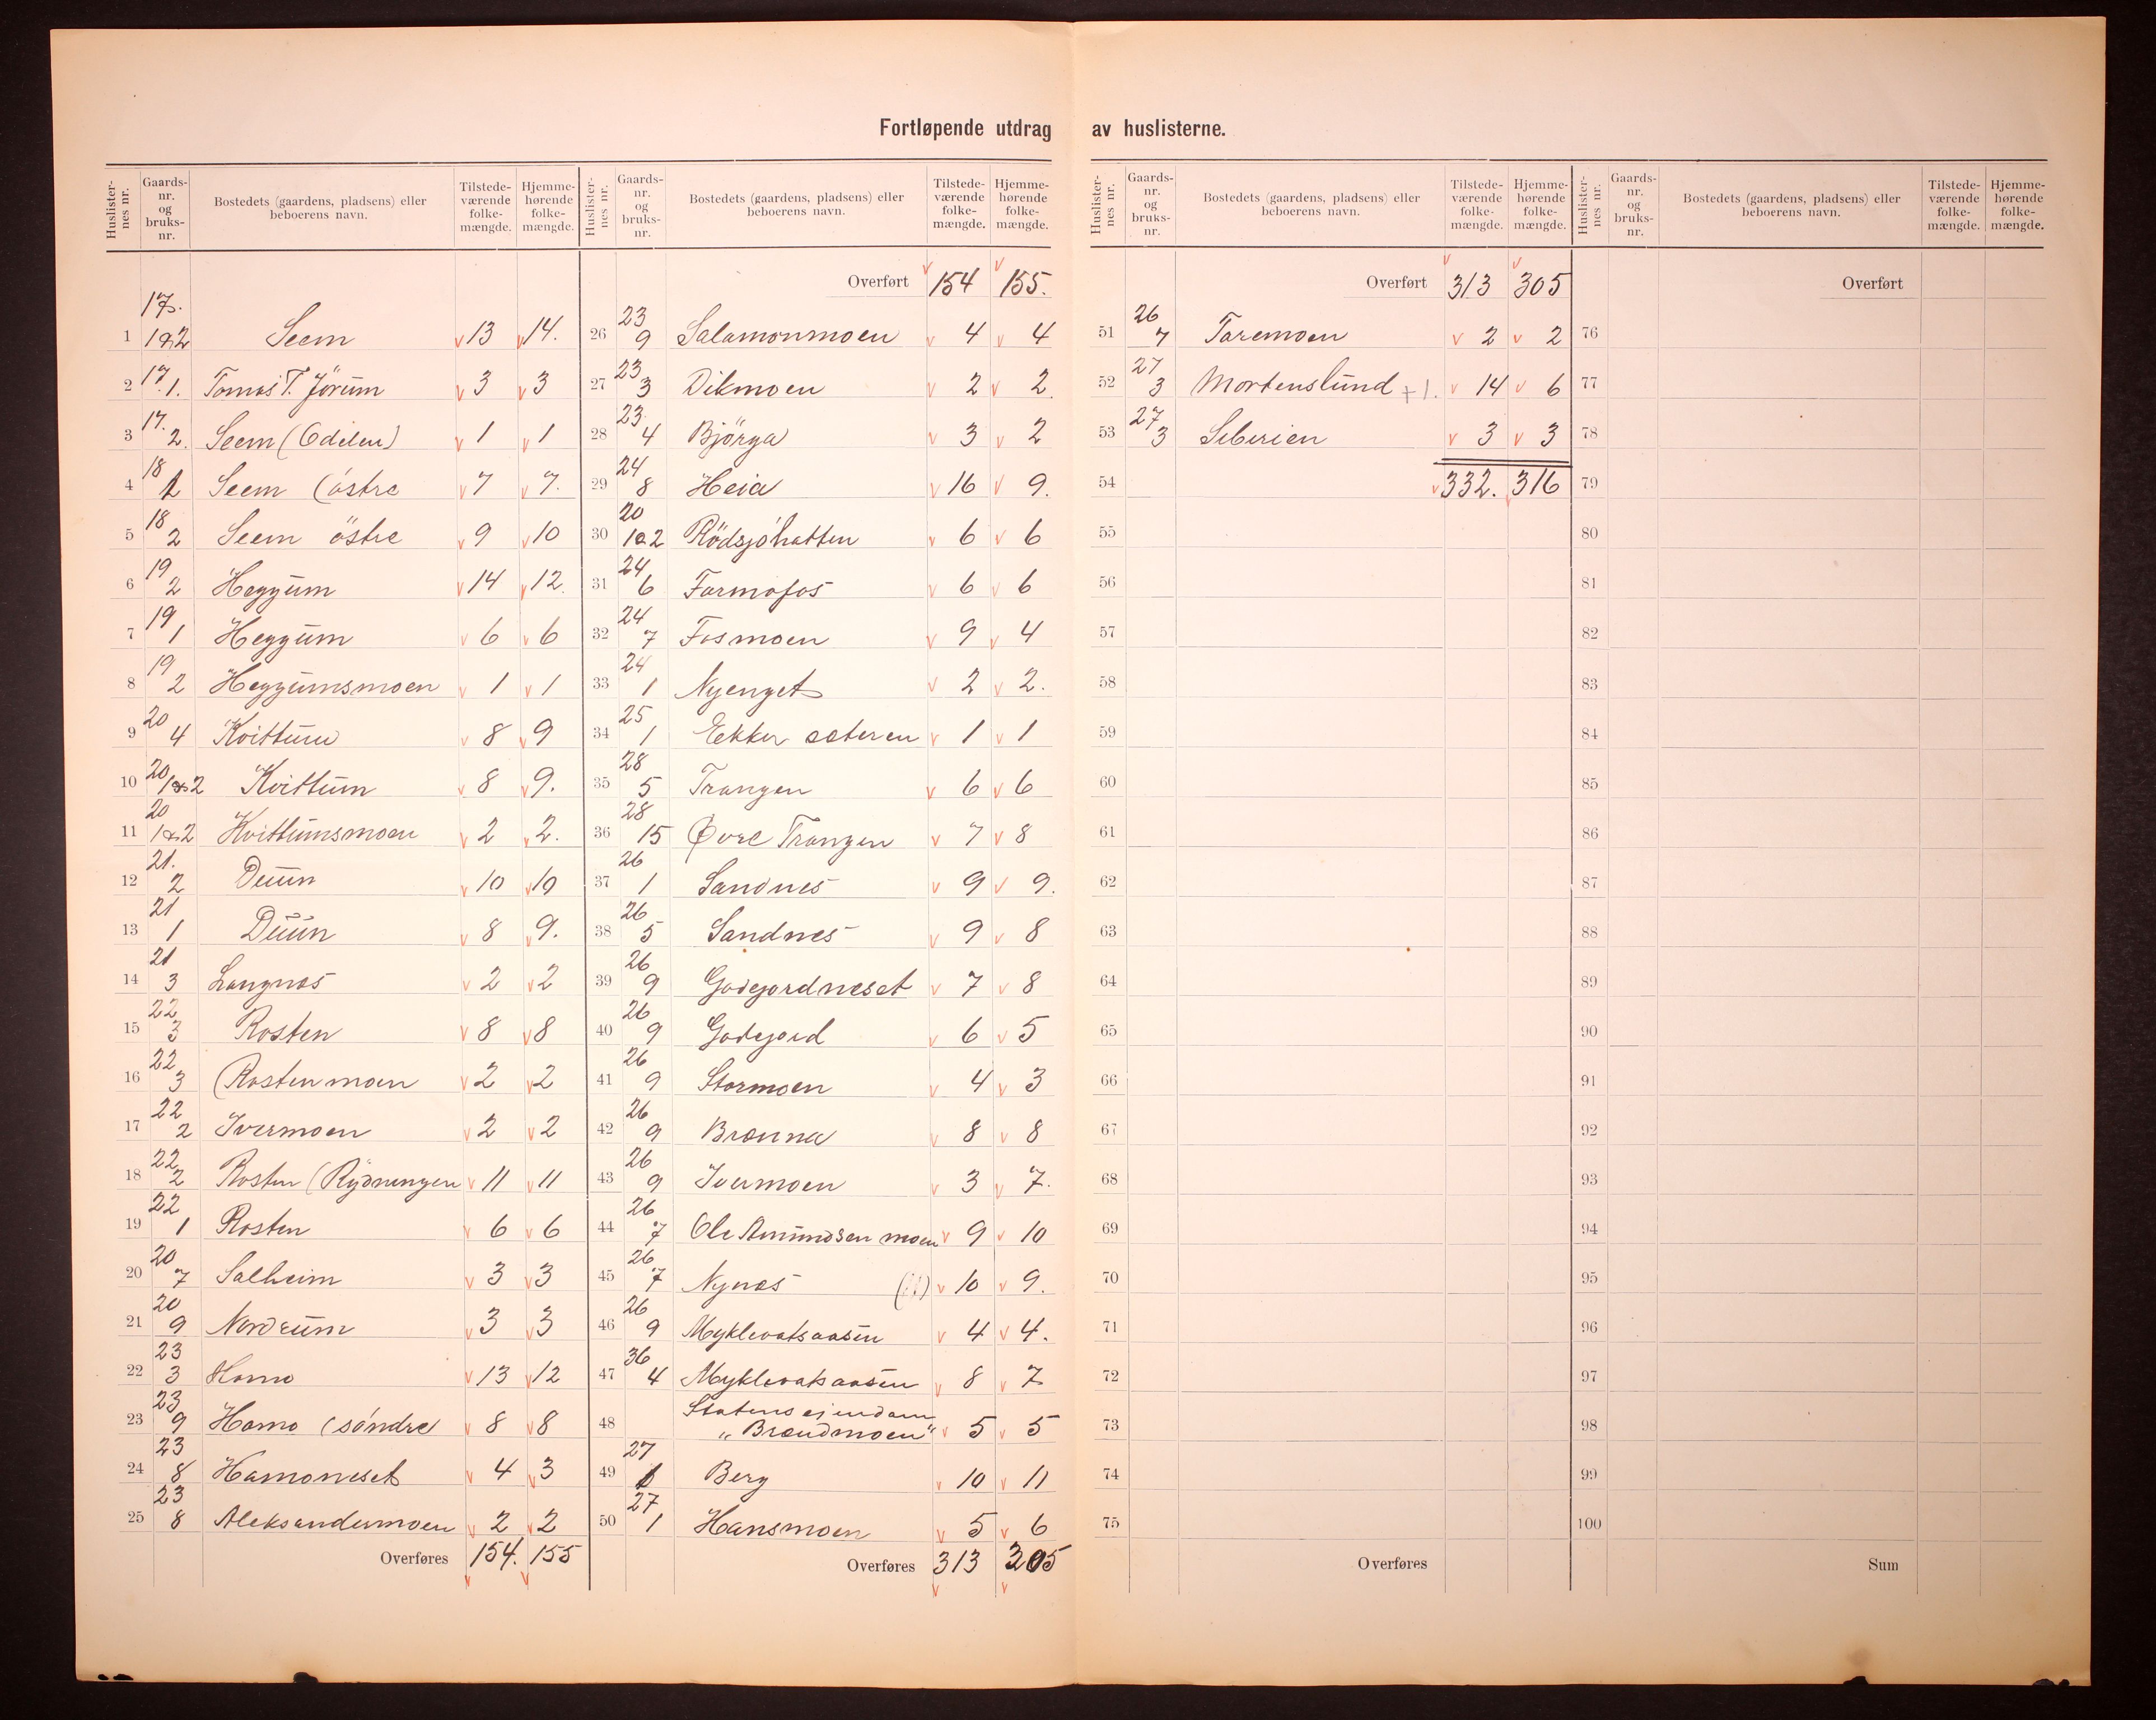 Fortløpende utdrag av huslisterne.
Huslister-nes nr. Gaards-nr. og bruks-nr. Bostedets (gaardens, pladsens) eller beboerens navn. Tilstede-værende folke-mængde. Hjemme-hørende folke-mængde.
1 17. 1&2 Seem 13 14.
2 17. 1. Tomas T. Jörum 3 3
3 17. 2. Seem (Odelen) 1 1
4 18 1 Seem (östre 7 7.
5 18 2 Seem östre 9 10
6 19 2 Heggum 14 12.
7 19 1 Heggum 6 6
8 19 2 Heggumsmoen 1 1
9 20 4 Kvittum 8 9
10 20 1&2 Kvittum 8 9.
11 20 1&2 Kvittumsmoen 2 2.
12 21. 2 Duun 10 10
13 21 1 Duun 8 9.
14 21 3 Langnes 2 2
15 22 3 Rosten 8 8
16 22 3 (Rostenmoen 2 2
17 22 2 Ivermoen 2 2
18 22 2 Rosten (Rydningen 11 11
19 22 1 Rosten 6 6
20 20 7 Salheim 3 3
21 20 9 Nordrum 3 3
22 23 3 Homo 13 12
23 23 9 Homo (söndre 8 8
24 23 8 Hamoneset 4 3
25 23 8 Aleksandermoen 2 2
Overføres 154. 155
Huslister-nes nr. Gaards-nr. og bruks-nr. Bostedets (gaardens, pladsens) eller beboerens navn. Tilstede-værende folke-mængde. Hjemme-hørende folke-mængde.
Overført 154 155.
26 23 9 Salamonmoen 4 4
27 23 3 Dikmoen 2 2.
28 23. 4 Björga 3 2
29 24 8 Heia 16 9.
30 20 1&2 Rödsjöhatten 6 6
31 24 6 Formofos 6 6
32 24 7 Fosmoen 9 4
33 24 1 Nyenget 2 2.
34 25 1 Ekker seteren 1 1
35 28 5 Trangen 6 6
36 28 15 Øvre Trangen 7 8
37 26 1 Sandnes 9 9.
38 26 5 Sandnes 9 8
39 26 9 Godejordneset 7 8
40 26 9 Godejord 6 5
41 26 9 Stormoen 4 3
42 26 9 Brenna 8 8
43 26 9 Ivermoen 3 7.
44 26 7 Ole Amundsen moen 9 10
45 26 7 Nynes (11) 10 9.
46 26 9 Myklevatsaasen 4 4.
47 36 4 Myklevatsaasen 8 7
48 Statens ejendom
"Brandmoen" 5 5
49 27 1 Berg 10 11
50 27 1 Hansmoen 5 6
Overføres 313 305
Huslister-nes nr. Gaards-nr. og bruks-nr. Bostedets (gaardens, pladsens) eller beboerens navn. Tilstede-værende folke-mængde. Hjemme-hørende folke-mængde.
Overført 313 305
51 26 7 Taremoen 2 2
52 27 3 Mortenslund +1. 14 6
53 27 3 Siberien 3 3
54 332. 316
55
56
57
58
59
60
61
62
63
64
65
66
67
68
69
70
71
72
73
74
75
Overføres
Huslister-nes nr. Gaards-nr. og bruks-nr. Bostedets (gaardens, pladsens) eller beboerens navn. Tilstede-værende folke-mængde. Hjemme-hørende folke-mængde.
Overført
76
77
78
79
80
81
82
83
84
85
86
87
88
89
90
91
92
93
94
95
96
97
98
99
100
Sum